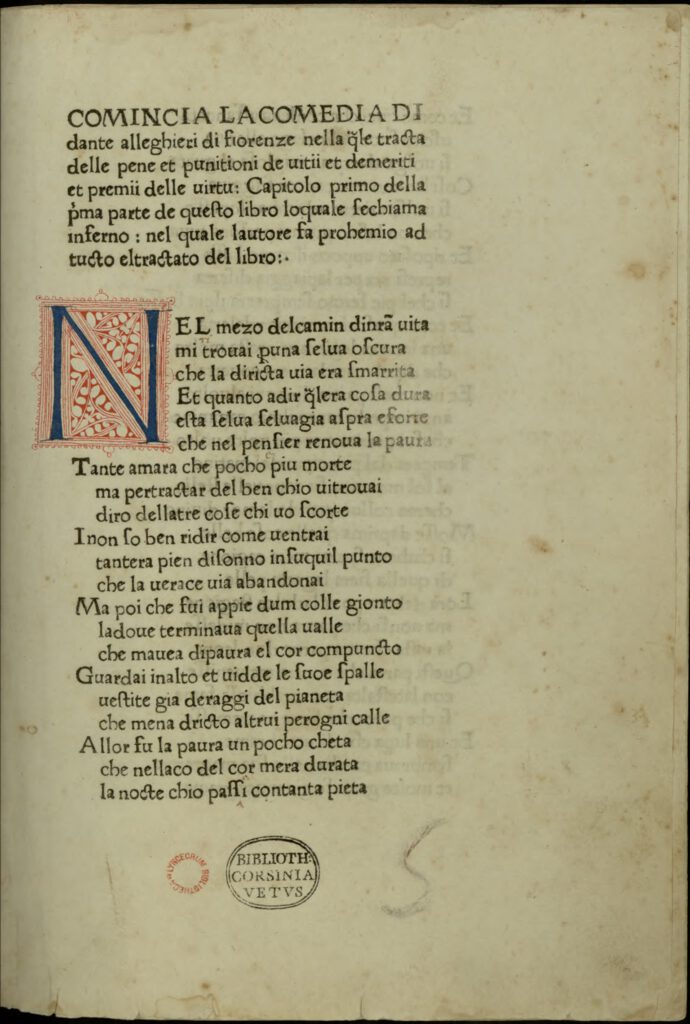 COMINCIA LACOMEDIA DI
dante alleghieri di fiorenze nella q̄le tracta
delle pene et punitioni de uitii et demeriti
et premii delle uirtu: Capitolo primo della
p̄ma parte de queſto libro loquale ſechiama
inferno : nel quale lautore fa prohemio ad
tucto eltractato del libro:·
NEL mezo delcamin dinr̄a uita
mi trouai ꝑuna ſelua oſcura
che la diricta uia era ſmarrita
Et quanto adir q̄lera coſa dura
eſta ſelua ſeluagia aſpra eforte
che nel penſier renoua la paura
Tante amara che pocho piu morte
ma pertractar del ben chio uitrouai
diro dellatre coſe chi uo ſcorte
I non ſo ben ridir come uentrai
tantera pien diſonno inſuquil punto
che la uerace uia abandonai
Ma poi che fui appie dum colle gionto
ladoue terminaua quella ualle
che mauea dipaura el cor compuncto
Guardai inalto et uidde le ſuoe ſpalle
ueſtite gia deraggi del pianeta
che mena dricto altrui perogni calle
Allor fu la paura un pocho cheta
che nellaco del cor mera durata
la nocte chio paſſi contanta pieta
LYNCEORUM BIBLIOTHECA
BIBLIOTH.
CORSINIA
VETVS